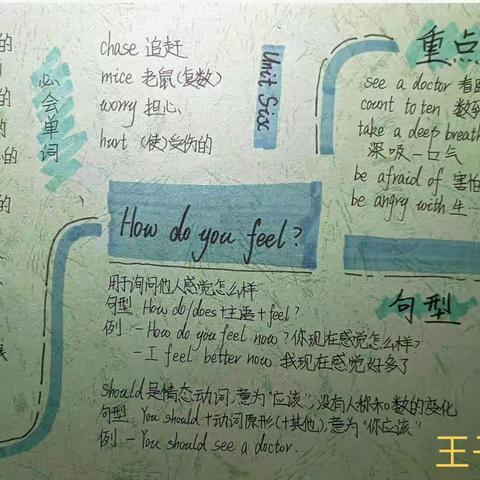 的
的
的
的
必会单词
chase 追赶
mice 老鼠(复数)
worry 担心
hurt (使)受伤的
Unit Six
重点
see a doctor 看
count to ten 数
take a deets breath
深吸一口气
be afraid of 害怕
be angry with 生
How do you feel?
句型
用于询问他人感觉怎么样
句型 How do/does+主语+feel?
例 - How do you feel now? 你现在感觉怎么样?
- I feel better now 我现在感觉好多了
should是情态动词,意为"应该",没有人称和数的变化
句型 You should+动词原形(+其他),意为"你应该"
例 - You should see a doctor.
王